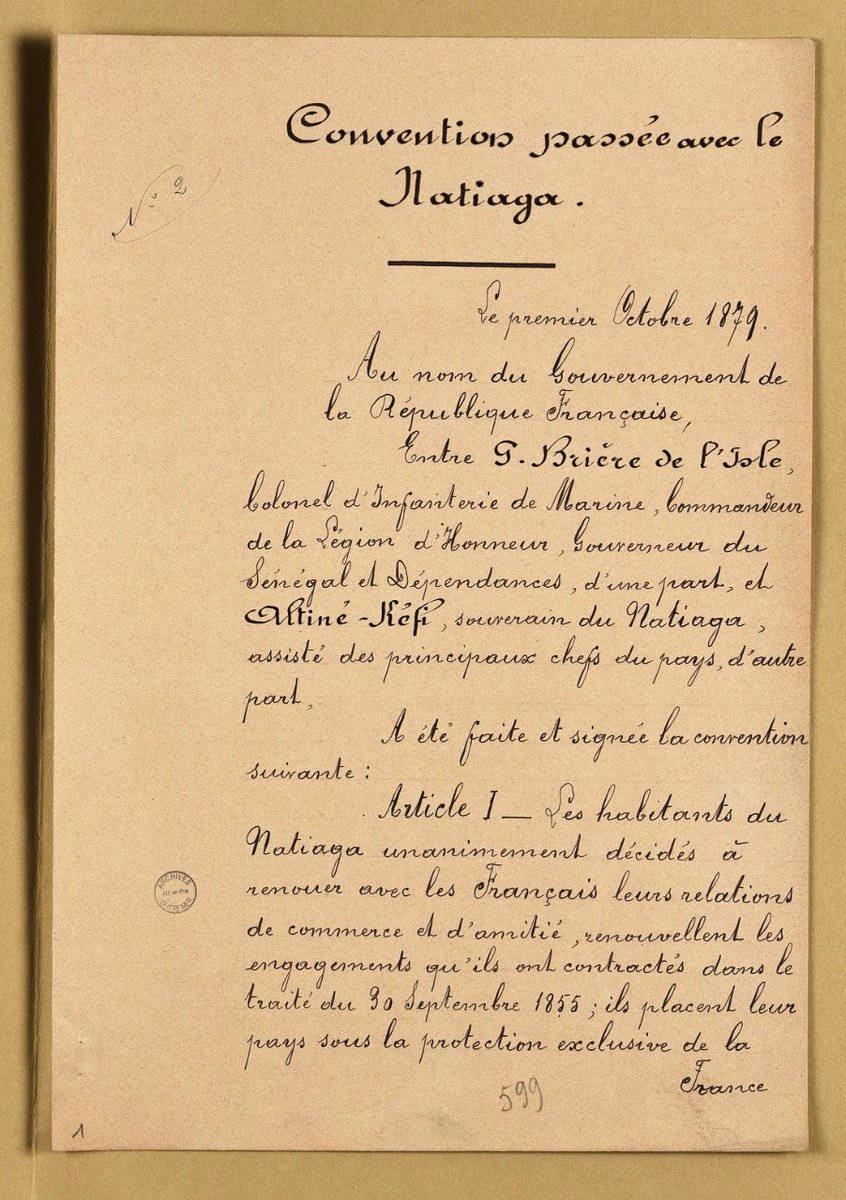 Convention passée avec le
Natiaga.
N° 2
Le premier Octobre 1879.
Au nom du Gouvernement de
la République Française,
Entre G. Brière de l'Isle,
Colonel d'Infanterie de Marine, Commandeur
de la Légion d'Honneur, Gouverneur du
Sénégal et Dépendances, d'une part, et
Altiné-Kéfi, souverain du Natiaga,
assisté des principaux chefs du pays, d'autre
part,
A été faite et signée la convention
suivante :
Article I — Les habitants du
Natiaga unanimement décidés à
renouer avec les Français leurs relations
de commerce et d'amitié, renouvellent les
engagements qu'ils ont contractés dans le
traité du 30 Septembre 1855 ; ils placent leur
pays sous la protection exclusive de la
France
599
1
ARCHIVES
D'OUTRE-MER